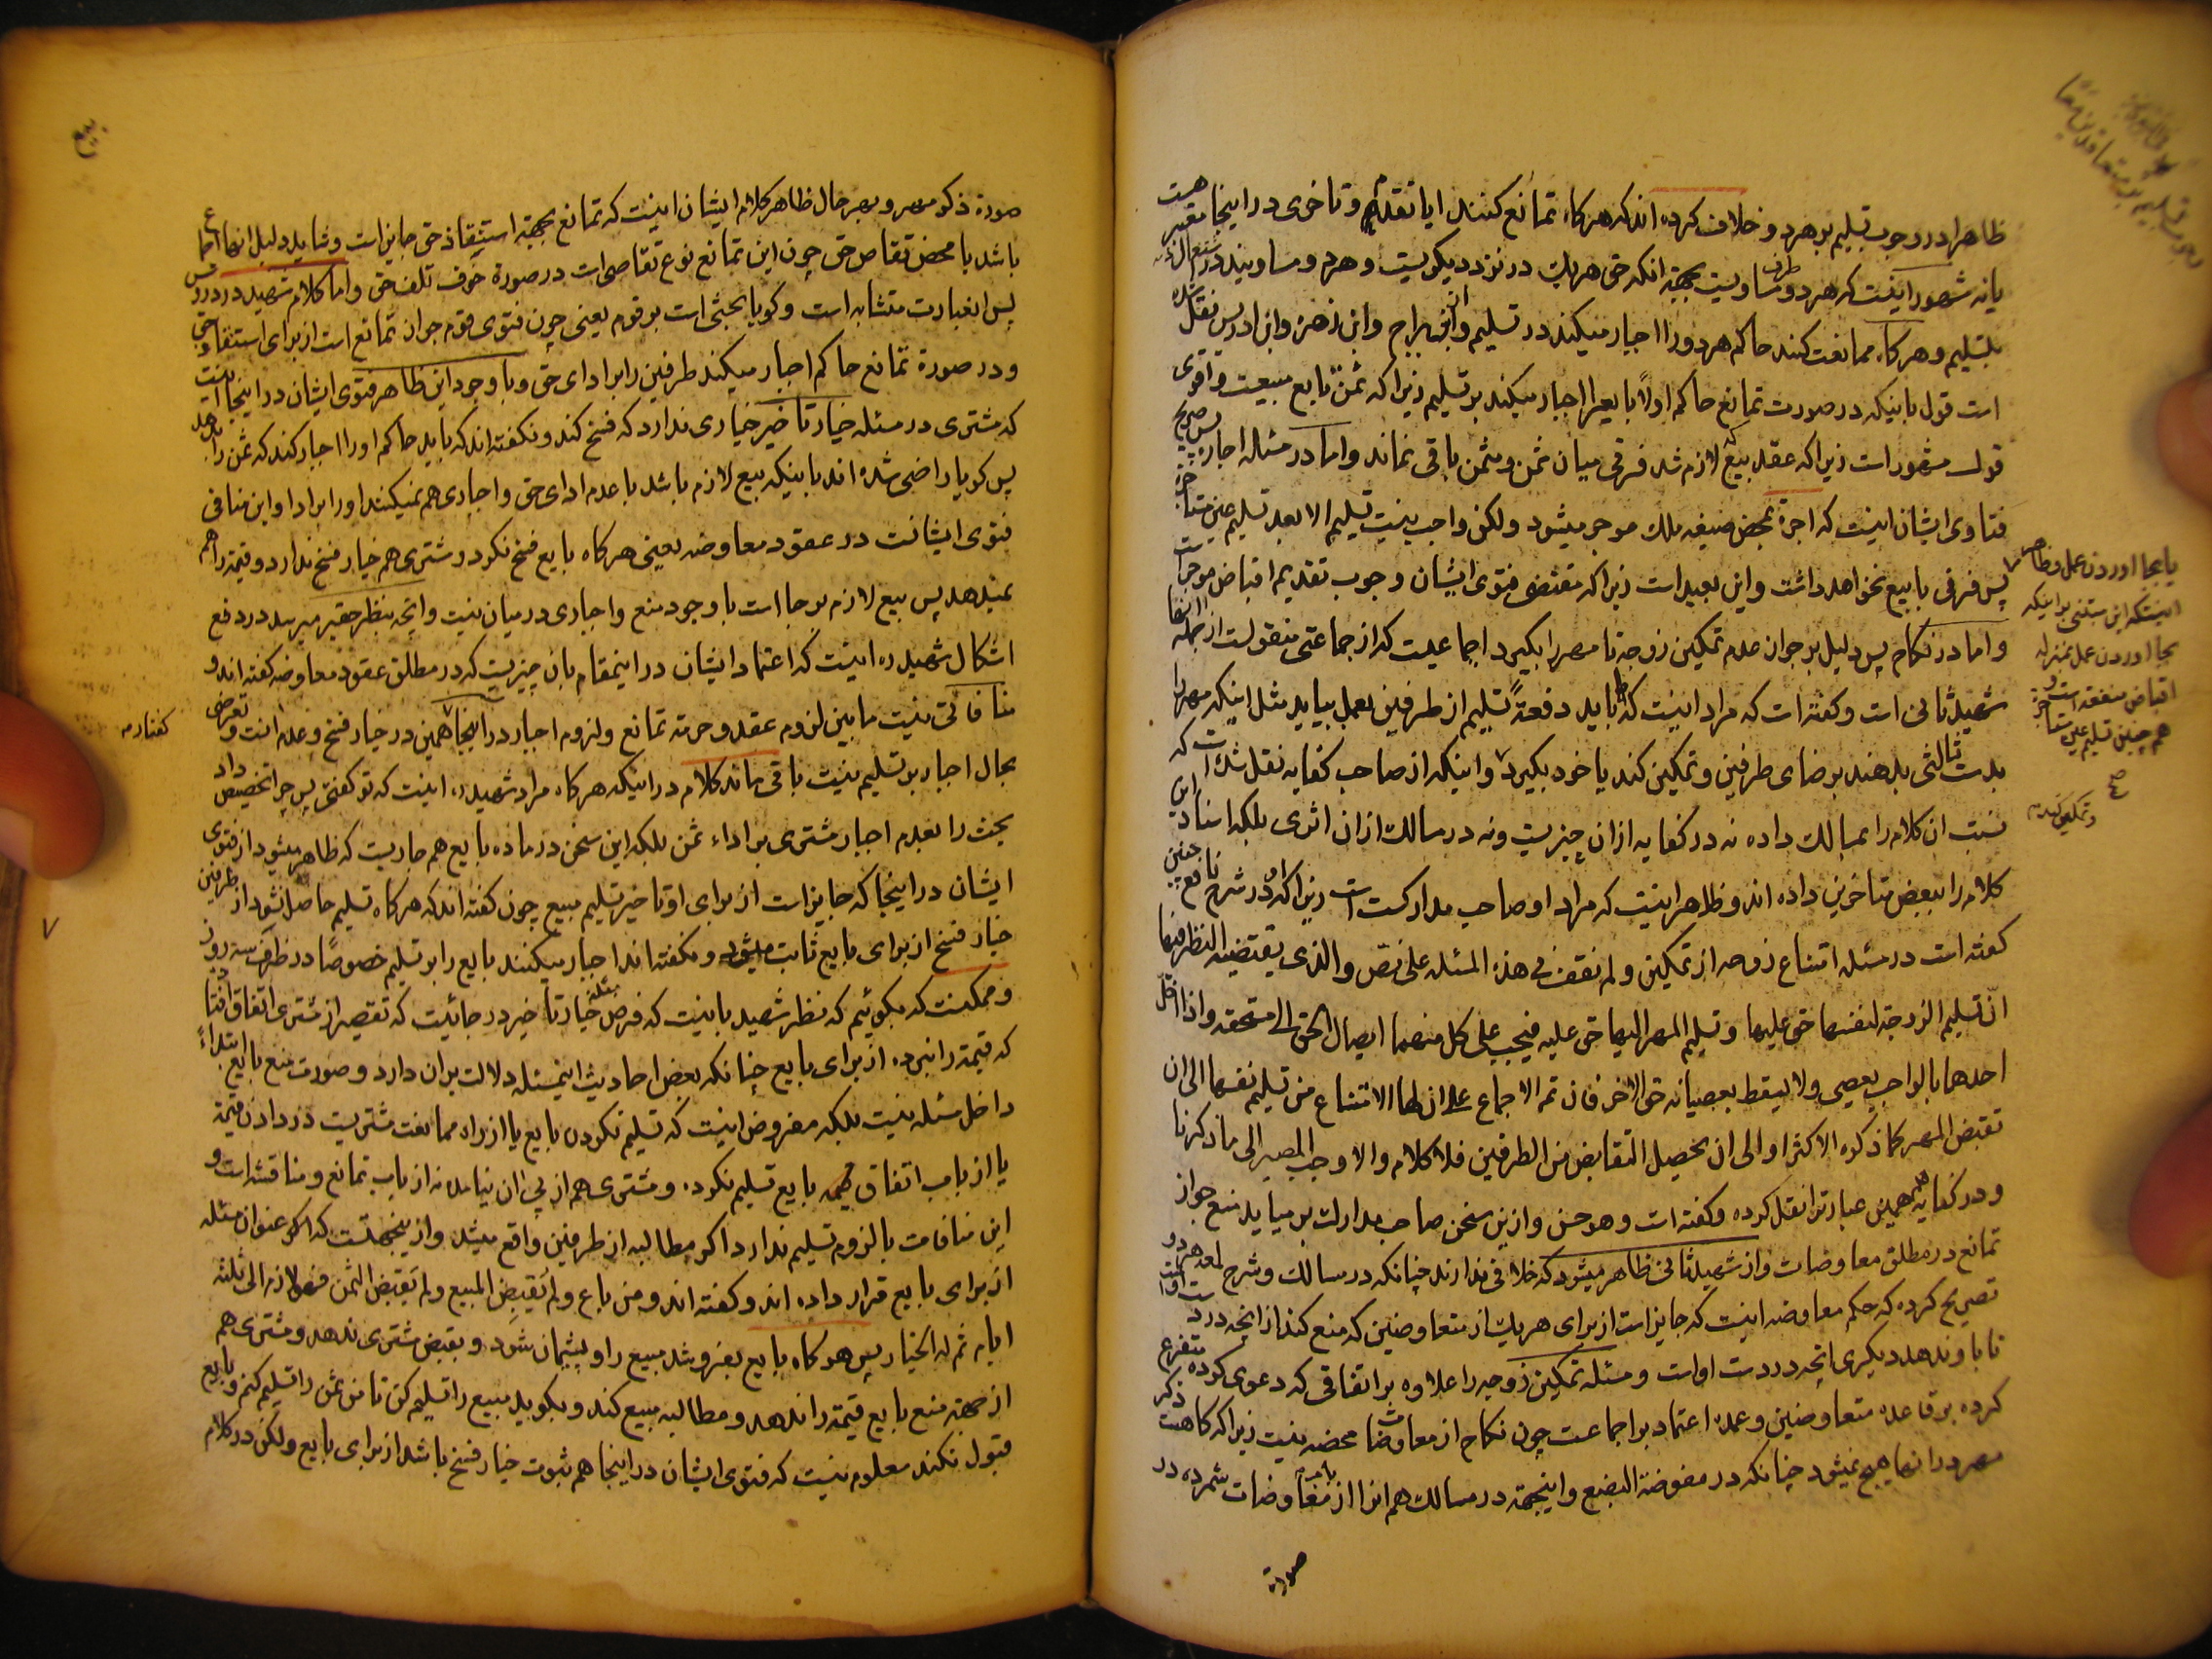 ظاهرا در وجوب تسلیم بر هر دو خلاف کرده اند که هر کاه تمانع کنند ایا تقدم و تاخری در اینجا معتبر هست
یا نه مشهور اینست که هر دو مساویست بجهة انکه حق هر یک در نزد دیکریست و هر دو مساویند در
بتسلیم و هر کاه ممانعت کنند حاکم هر دو را اجبار میکند در تسلیم و از ابن براج و ابن زهره و ابن ادریس نقل شده
است قول باینکه در صورت تمانع حاکم اولا بایع را اجبار میکند بر تسلیم زیرا که ثمن تابع مبیعست و اقوی
قول مشهور است زیرا که عقد بیع که لازم شد فرقی میان ثمن و مثمن باقی نماند و اما در مسئله اجاره پس صریح
فتاوی ایشان اینست که اجرة بمحض صیغه ملک موجر میشود ولکن واجب نیست تسلیم الا بعد تسلیم عین مستاجره
پس فرقی با بیع نخواهد داشت و این بعید است زیرا که مقتضی فتوی ایشان وجوب تقدیم اقباض موجر است
و اما در نکاح پس دلیل بر جواز عدم تمکین زوجه تا مهر را بکیرد اجماعیست که از جماعتی منقولست از جمله انها
شهید ثانی است و کفته است که مراد اینست که باید دفعة تسلیم از طرفین بعمل بیاید مثل اینکه مهر را
بدست ثالثی بدهند برضای طرفین و تمکین کند یا خود بکیرد و اینکه از صاحب کفایه نقل شده است که
نسبت ان کلام را بمسالک داده نه در کفایه از ان چیزیست و نه در مسالک از ان اثری بلکه اسناد این
کلام را ببعض متاخرین داده اند و ظاهر اینست که مراد او صاحب مدارکست زیرا که او در شرح نافع چنین
کفته است در مسئله امتناع زوجه از تمکین و لم نقف فی هذه المسئله علی نص والذی یقتضیه النظر فیها
ان تسلیم الزوجة لنفسها حق علیها و تسلیم المهر الیها حق علیه فیجب علی کل منهما ایصال الحق الی مستحقه و اذا اخل
احدهما بالواجب یعصی و لا یسقط بعصیانه حق الاخر فان تم الاجماع علی ان لها الامتناع من تسلیم نفسها الی ان
تقبض المهر کما ذکره الاکثر او الی ان یحصل التقابض من الطرفین فلا کلام و الا وجب المصیر الی ما ذکرنا
و در کفایه هم همین عبارترا نقل کرده و کفته است و هو حسن و ازین سخن صاحب مدارک بر میاید منع جواز
تمانع در مطلق معاوضات و از شهید ثانی ظاهر میشود که خلافی ندارند چنانکه در مسالک و شرح لمعه هر دو
تصریح کرده که حکم معاوضه اینست که جایز است از برای هر یک از متعاوضین که منع کند از انچه در دست اوست
تا باو بدهد دیکری انچه در دست اوست و مسئله تمکین زوجه را علاوه بر اتفاقی که دعوی کرده متفرع
کرده بر قاعده متعاوضین و عمده اعتماد بر اجماعست چون نکاح از معاوضات محضه نیست زیرا که کاهست ذکر
مهر در انها هیچ نمیشود چنانکه در مفوضة البضع و اینجهة در مسالک هم انرا از معاوضات شمرده در
صورة
یا بجا اوردن عمل و ظاهر
اینستکه این مبتنی بر اینکه
بجا اوردن عمل بمنزله
اقباض منفعه است و
هم چنین تسلیم عین مستاجره
و تمکین کند
بیع
صورة ذکر مهر و بهر حال ظاهر کلام ایشان اینست که تمانع بجهة استیفاذ حق جایز است و شاید دلیل انها اجماع
باشد یا محض تقاص حق چون این تمانع نوع تقاصی است در صورة خوف تلف حق و اما کلام شهید در دروس
پس انعبارت متشابه است و کویا بحثی است بر قوم یعنی چون فتوی قوم جواز تمانع است از برای استیفاء حق
و در صورة تمانع حاکم اجبار میکند طرفین را بر ادای حق و با وجود این ظاهر فتوی ایشان در اینجا اینست
که مشتری در مسئله خیار تاخیر خیاری ندارد که فسخ کند و نکفته اند که باید حاکم او را اجبار کند که ثمن را بدهد
پس کویا راضی شده اند باینکه بیع لازم باشد با عدم ادای حق و اجباری هم نمیکنند او را بر ادا و این منافی
فتوی ایشانست در عقود معاوضه یعنی هر کاه بایع فسخ نکرد مشتری هم خیار فسخ ندارد و قیمة را هم
نمیدهد پس بیع لازم بر جا است با وجود منع و اجباری در میان نیست و انچه بنظر حقیر میرسد در دفع
اشکال شهید ره اینست که اعتماد ایشان در اینمقام بان چیزیست که در مطلق عقود معاوضه کفته اند و
منافاتی نیست ما بین لزوم عقد و حرمة تمانع و لزوم اجبار در اینجا همین در خیار فسخ و عدم انست و تعرضی
بحال اجبار بر تسلیم نیست باقی ماند کلام در اینکه هر کاه مراد شهید ره اینست که تو کفتی پس چرا تخصیص داد
بحث را بعدم اجبار مشتری بر اداء ثمن بلکه این سخن در ماده بایع هم جاریست که ظاهر میشود از فتوی
ایشان در اینجا که جایز است از برای او تاخیر تسلیم مبیع چون کفته اند که هر کاه تسلیم حاصل نشود از طرفین
خیار فسخ از برای بایع ثابت میشود و نکفته اند اجبار میکنند بایع را بر تسلیم خصوصا در ظرف سه روز
و ممکنست که بکوئیم که نظر شهید باینست که فرض مسئله خیار تاخیر در جائیست که تقصیر از مشتری اتفاق افتاده
که قیمة را نبرده از برای بایع چنانکه بعض احادیث اینمسئله دلالت بران دارد و صورت منع بایع ابتداءً
داخل مسئله نیست بلکه مفروض اینست که تسلیم نکردن بایع یا از راه ممانعت مشتریست در دادن قیمة
یا از باب اتفاق بایع تسلیم نکرده و مشتری هم از پی ان نیامده نه از باب تمانع و مناقشه است و
این منافات با لزوم تسلیم ندارد اکر مطالبه از طرفین واقع میشد و از اینجهتست که اکثر عنوان مسئله
از برای بایع قرار داده اند و کفته اند و من باع و لم یقبض المبیع و لم یقبض الثمن فهو لازم الی ثلثة
ایام ثم له الخیار پس هر کاه بایع بفروشد مبیع را و پشیمان شود و بقبض مشتری ندهد و مشتری هم
از جهة منع بایع قیمة را ندهد و مطالبه مبیع کند و بکوید مبیع را تسلیم کن تا من ثمن را تسلیم کنم و بایع
قبول نکند معلوم نیست که فتوی ایشان در اینجا هم ثبوت خیار فسخ باشد از برای بایع ولکن در کلام